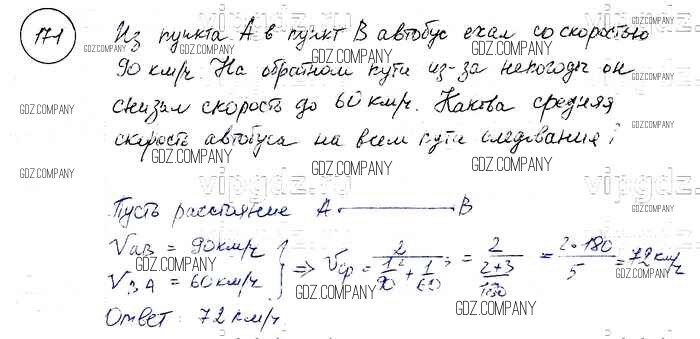 171
Из пункта А в пункт В автобус ехал со скоростью
90 км/ч. На обратном пути из-за непогоды он
снизил скорость до 60 км/ч. Какова средняя
скорость автобуса на всем пути следования?
Пусть расстояние А В
V_AB = 90 км/ч
V_BA = 60 км/ч
=> Vср = 2 / (1/90 + 1/60) = 2 / ((2+3)/180) = 2·180 / 5 = 72 км/ч
Ответ: 72 км/ч
vipgdz.ru
GDZ.COMPANY